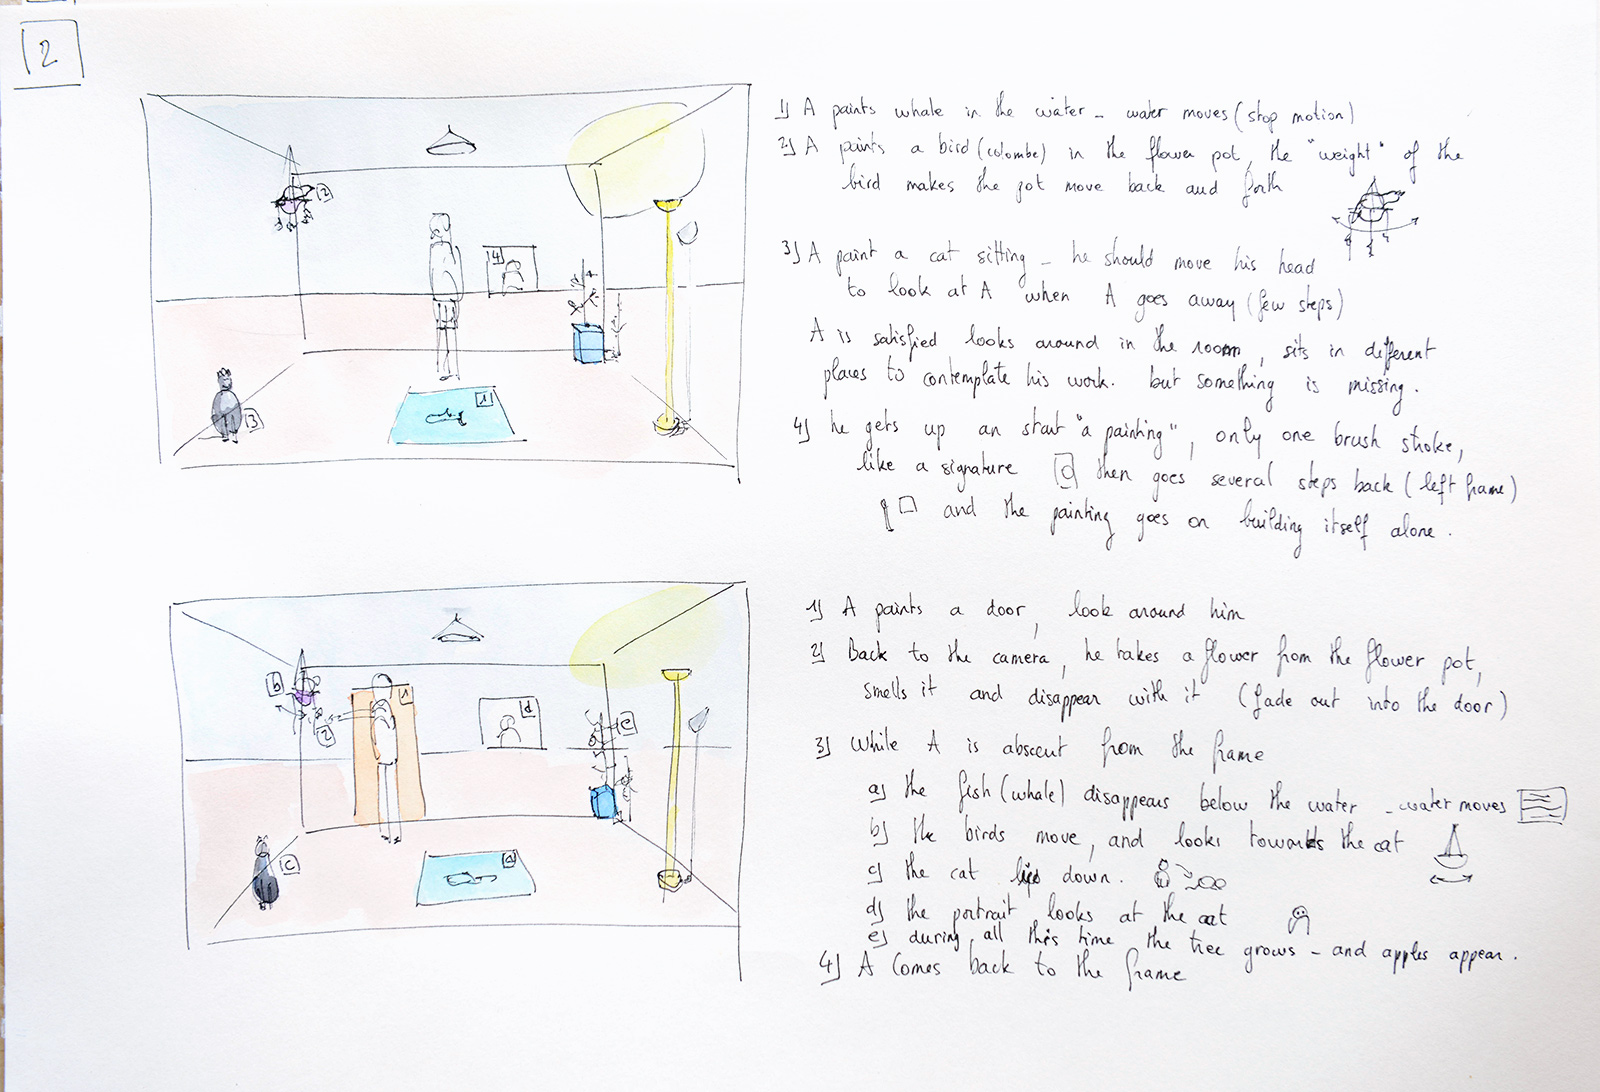 2
1) A paints whale in the water - water moves (stop motion)
2) A paints a bird (colombe) in the flower pot, the "weight" of the
bird makes the pot move back and forth
3) A paint a cat sitting - he should move his head
to look at A when A goes away (few steps)
A is satisfied looks around in the room, sits in different
places to contemplate his work. but something is missing.
4) he gets up an start "a painting", only one brush stroke,
like a signature then goes several steps back (left frame)
and the painting goes on building itself alone.
2
4
3
1
1) A paints a door, look around him
2) Back to the camera, he takes a flower from the flower pot,
smells it and disappear with it (fade out into the door)
3) While A is abscent from the frame
a) the fish (whale) disappears below the water - water moves
b) the birds move, and looks towards the cat
c) the cat lies down.
d) the portrait looks at the cat
e) during all this time the tree grows - and apples appear.
4) A comes back to the frame
b
1
2
d
e
c
a